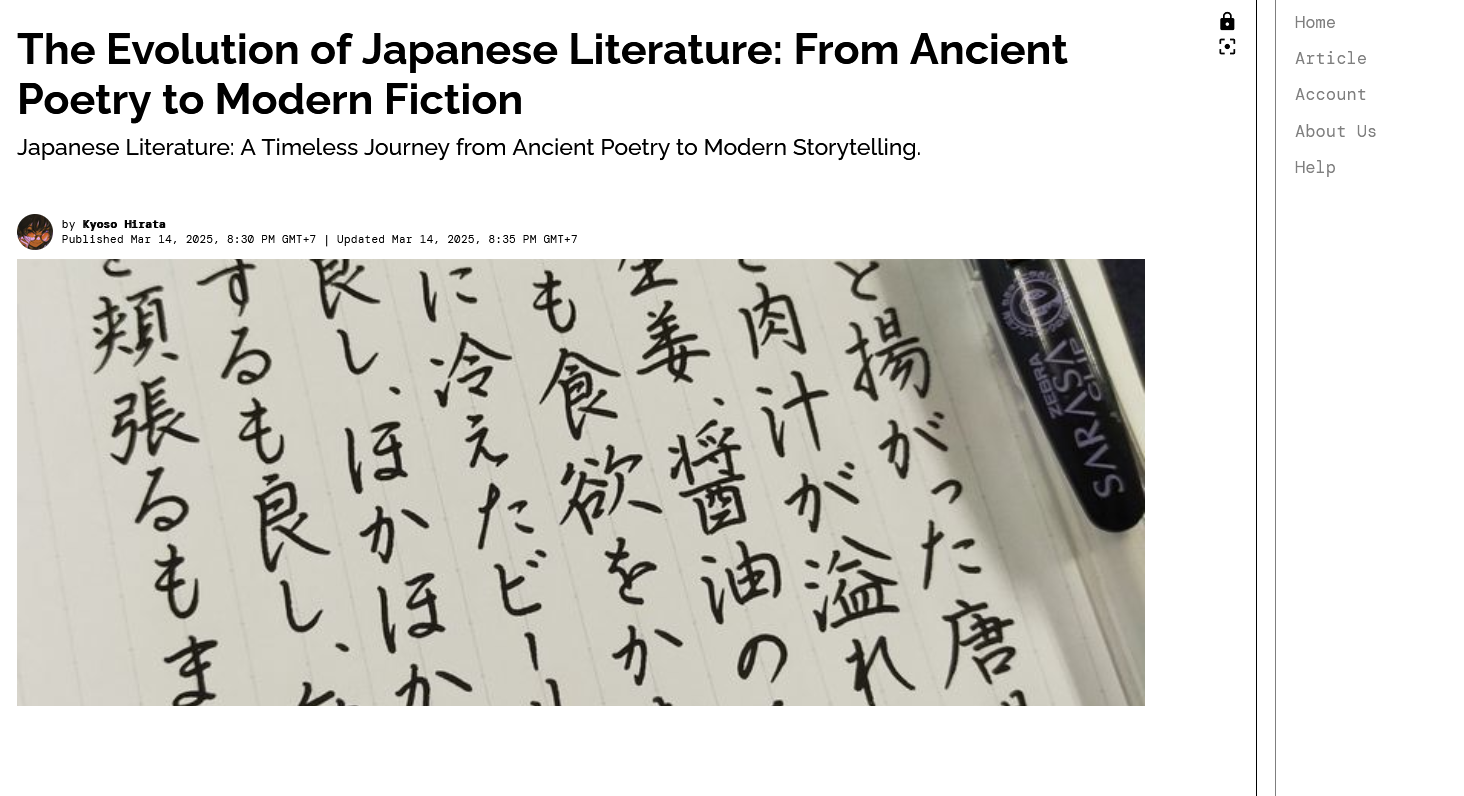 The Evolution of Japanese Literature: From Ancient
Poetry to Modern Fiction
Japanese Literature: A Timeless Journey from Ancient Poetry to Modern Storytelling.
by Kyoso Hirata
Published Mar 14, 2025, 8:30 PM GMT+7 | Updated Mar 14, 2025, 8:35 PM GMT+7
と揚がった唐
肉汁が溢れ
生姜、醤油の
も食欲をか
に冷えたビー
良し、ほかほか
するも良し、
頬張るもま
ZEBRA
SARASA
CLIP
Home
Article
Account
About Us
Help